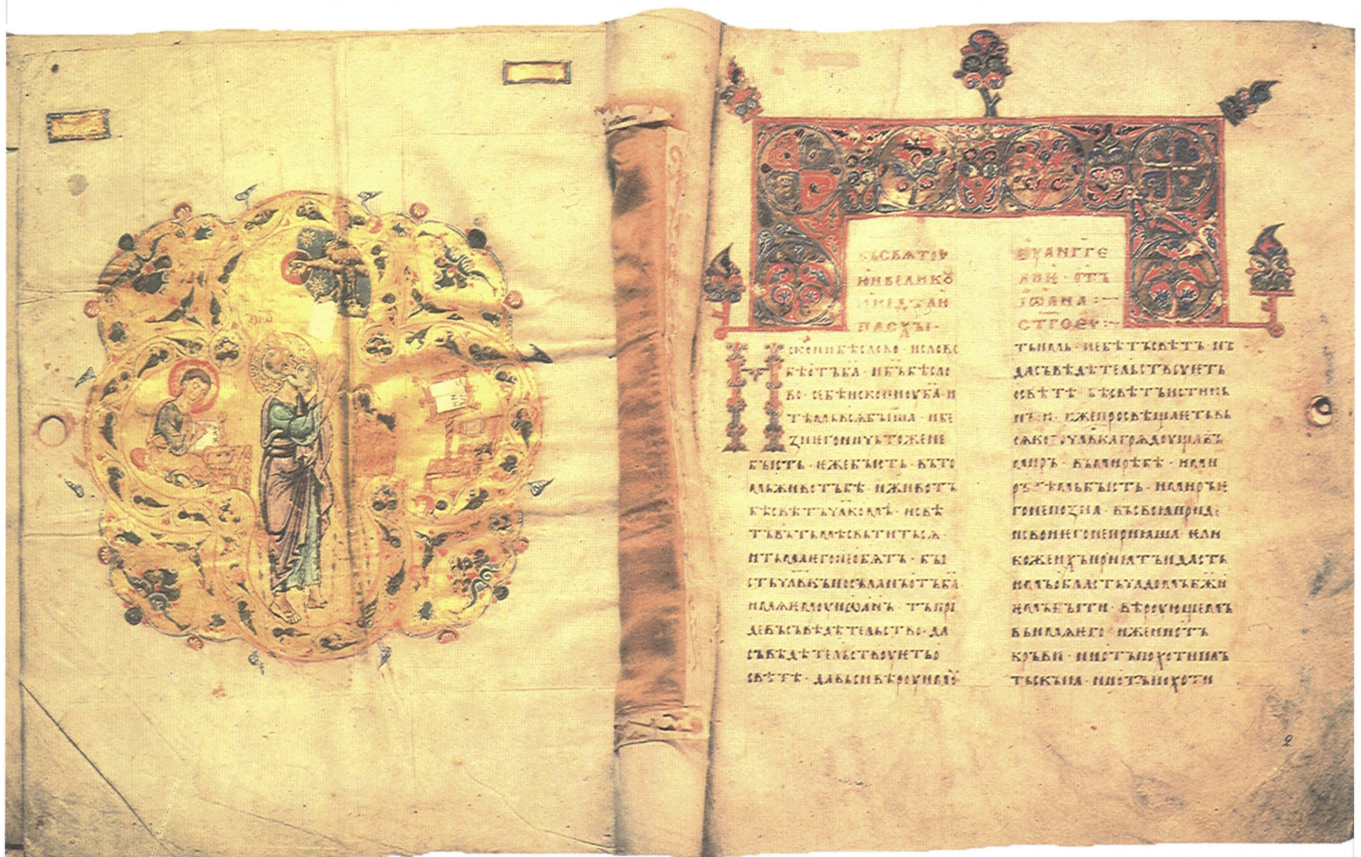 ВЪСВѦТОУ
ЮИВЕЛИКѸ
ЮНЕДѢЛИ
ПАСХЫ·
Искони бѣ слово · и слово
бѣ отъ б҃а · и б҃ъ бѣ сло
во · се бѣ искони оу б҃а · и
тѣмь вьсѧ быша · и бе
з него ничьтоже не
бысть · ѥже бысть · въ то
мь животъ бѣ · и животъ
бѣ свѣтъ ч҃лкомъ · и свѣ
тъ въ тьмѣ свьтитьсѧ ·
и тьма ѥго не обѧтъ · бы
сть ч҃лвкъ посъланъ отъ б҃а ·
имѧ ѥмоу иѡанъ · тъ при
де въ съвѣдѣтельство · да
съвѣдѣтельствоуѥть о
свѣтѣ · да вьси вѣроу имоу
ЕѴАНГГЕ
ЛИѤ · ОТЪ
ІѠАНА :~
СТГОЕѴ :~
ть имь · не бѣ тъ свѣтъ · нъ
да съвѣдѣтельствоуѥть
о свѣтѣ · бѣ свѣтъ истинь
нъи · иже просвѣщаѥть вь
сѧкого ч҃лвка грѧдоущаѧ въ
миръ · въ мирѣ бѣ · и ми
ръ тѣмь бысть · и миръ ѥ
го не позна · въ своѧ приде
и свои ѥго не приѩша · ѥли
ко же ихъ приѩтъ и дасть
имъ область чадомъ б҃жи
ѥмъ быти · вѣроующемъ
въ имѧ ѥго · иже ни отъ
кръви · ни отъ похоти пль
тьскыѩ · ни отъ похоти
2